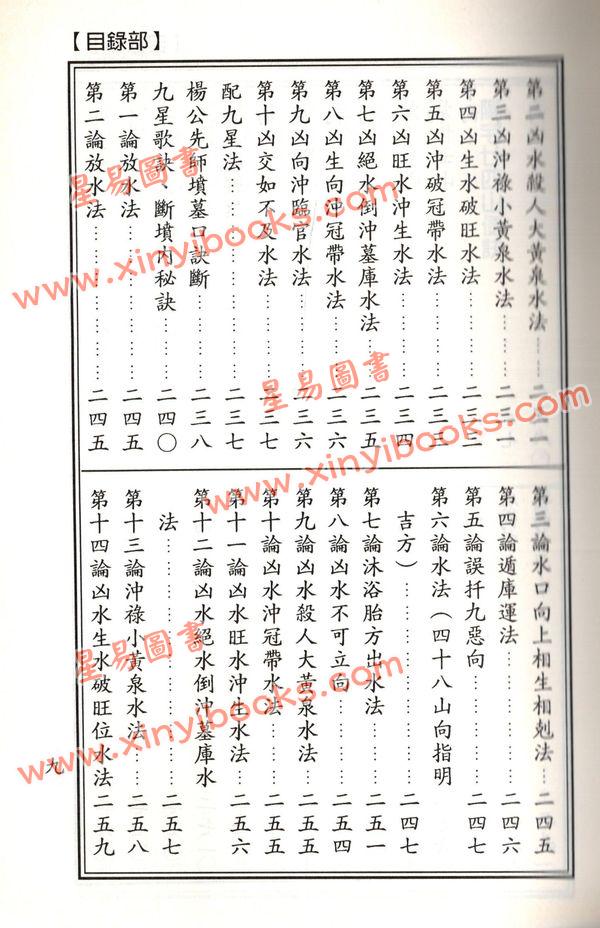 【目錄部】
第二凶水殺人大黃泉水法……二三一〇
第三凶沖祿小黃泉水法……二三一
第四凶生水破旺水法…………二三二
第五凶沖破冠帶水法…………二三三
第六凶旺水沖生水法…………二三四
第七凶絕水倒沖墓庫水法……二三五
第八凶生向沖冠帶水法………二三六
第九凶向沖臨官水法…………二三六
第十凶交如不及水法…………二三七
配九星法………………………二三七
楊公先師墳墓口訣斷…………二三八
九星歌訣、斷墳內秘訣………二四〇
第一論放水法…………………二四五
第二論放水法…………………二四五
第三論水口向上相生相剋法…二四五
第四論遁庫運法………………二四六
第五論誤扦九惡向……………二四七
第六論水法（四十八山向指明
吉方）…………………………二四七
第七論沐浴胎方出水法………二五一
第八論凶水不可立向…………二五四
第九論凶水殺人大黃泉水法…二五五
第十論凶水沖冠帶水法………二五五
第十一論凶水旺水沖生水法…二五六
第十二論凶水絕水倒沖墓庫水
法………………………………二五七
第十三論沖祿小黃泉水法……二五八
第十四論凶水生水破旺位水法二五九
九
星易圖書
www.xinyibooks.com
星易圖書
www.xinyibooks.com
星易圖書
www.xinyibooks.com
星易圖書
www.xinyibooks.com